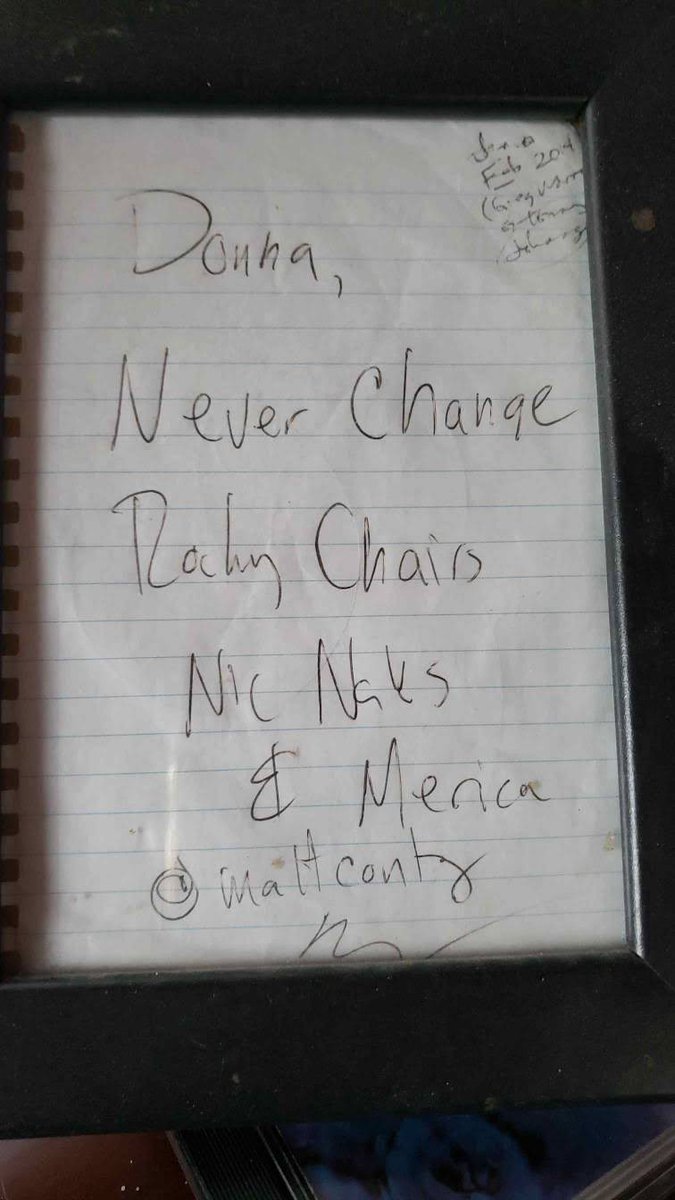 Feb
Donna,
Never Change
Rocky Chairs
Nic Naks
& Merica
@mattconty